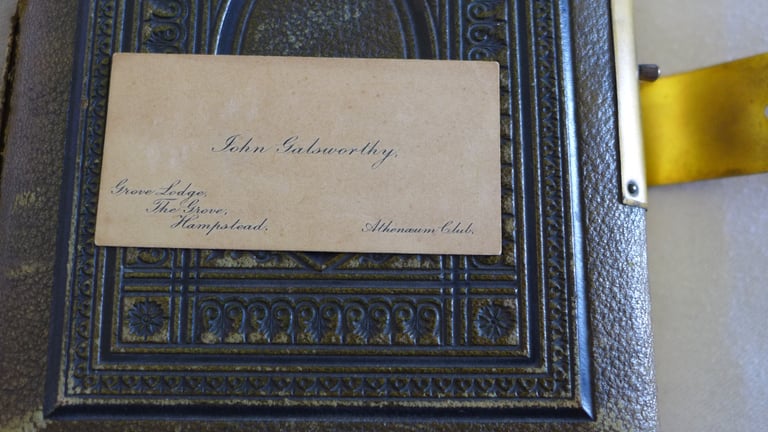 John Galsworthy,
Grove Lodge,
The Grove,
Hampstead.
Athenaum Club.